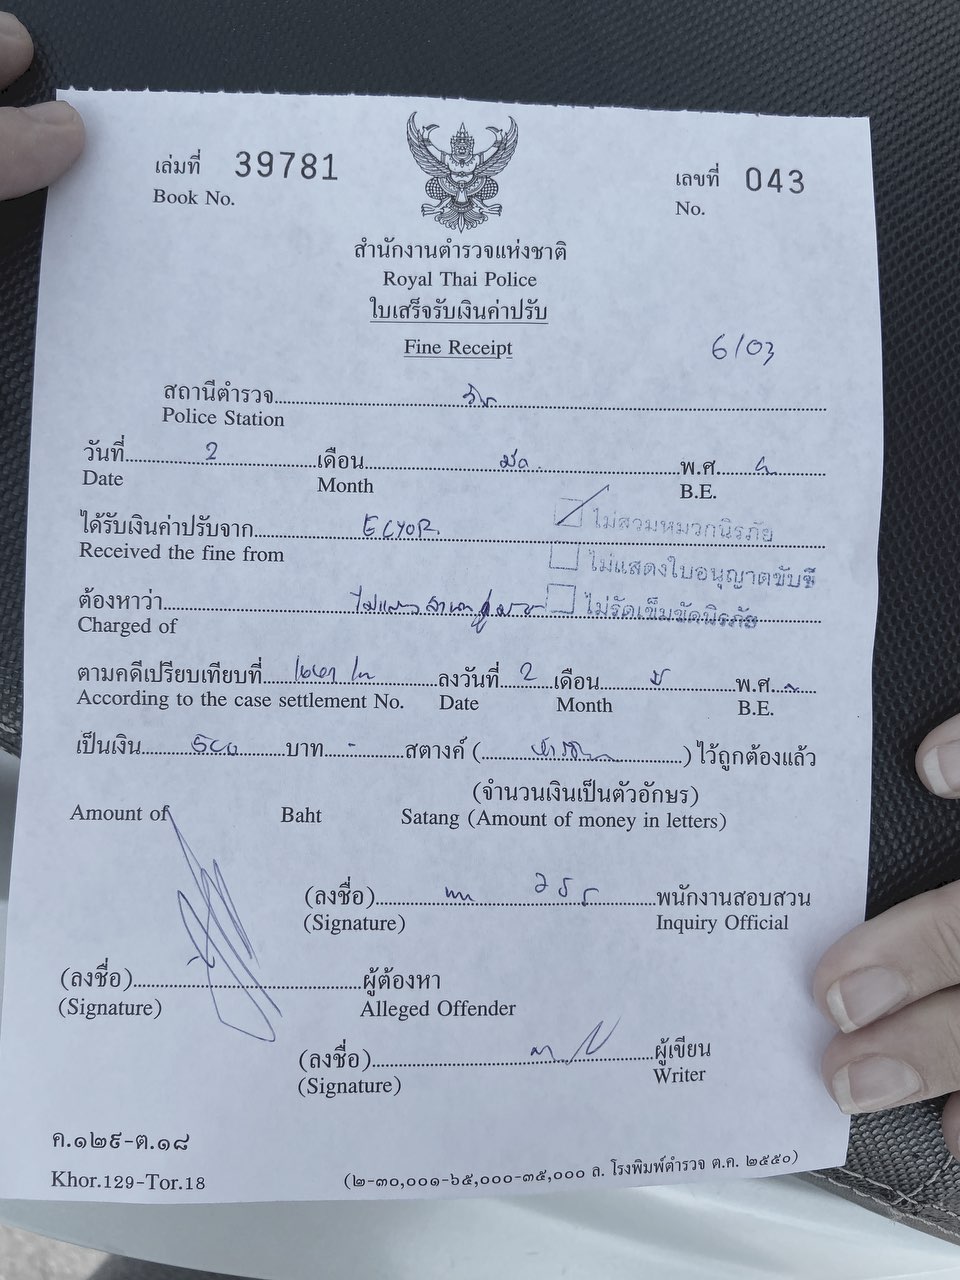 เล่มที่ 39781 เลขที่ 043
Book No. No.
สำนักงานตำรวจแห่งชาติ
Royal Thai Police
ใบเสร็จรับเงินค่าปรับ
Fine Receipt
6/03
สถานีตำรวจ
Police Station
วันที่ 2 เดือน พ.ศ.
Date Month B.E.
ไม่สวมหมวกนิรภัย
ได้รับเงินค่าปรับจาก
Received the fine from
ไม่แสดงใบอนุญาตขับขี่
ต้องหาว่า ไม่รัดเข็มขัดนิรภัย
Charged of
ตามคดีเปรียบเทียบที่ ลงวันที่ 2 เดือน พ.ศ.
According to the case settlement No. Date Month B.E.
เป็นเงิน 500 บาท - สตางค์ ( ) ไว้ถูกต้องแล้ว
(จำนวนเงินเป็นตัวอักษร)
Amount of Baht Satang (Amount of money in letters)
(ลงชื่อ) พนักงานสอบสวน
(Signature) Inquiry Official
(ลงชื่อ) ผู้ต้องหา
(Signature) Alleged Offender
(ลงชื่อ) ผู้เขียน
(Signature) Writer
ค.๑๒๙-ต.๑๘
Khor.129-Tor.18
(๒-๓๐,๐๐๑-๖๕,๐๐๐-๓๕,๐๐๐ ล. โรงพิมพ์ตำรวจ ต.ค. ๒๕๕๐)